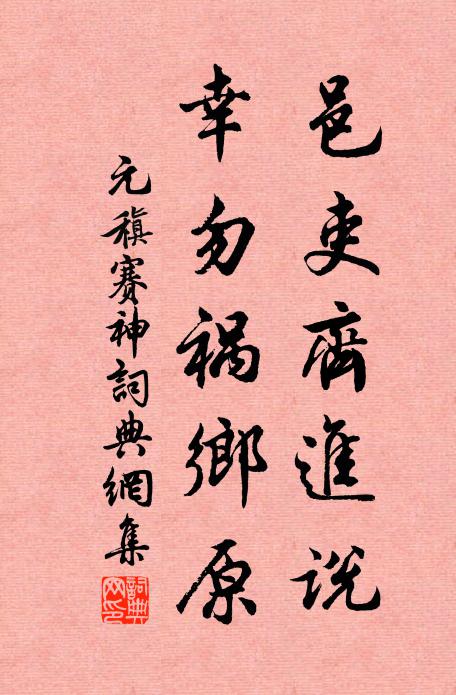 邑吏齊進説
幸勿禍鄉原
元稹賽神詞典網集
詞典網印